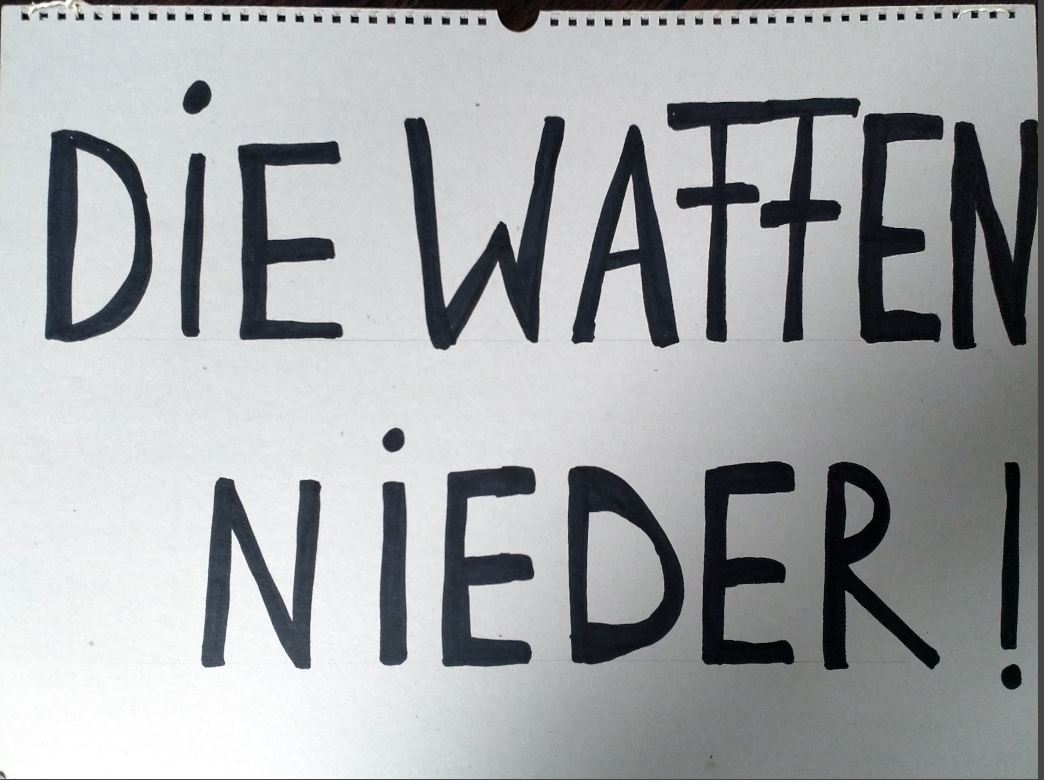 DiE WAFFEN
NiEDER!